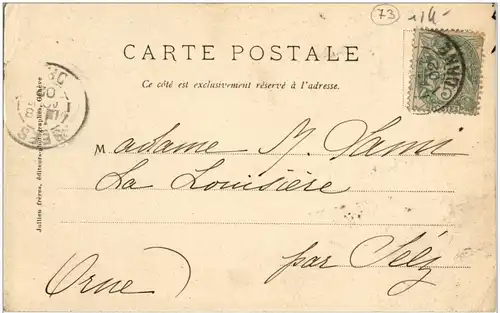 73
CARTE POSTALE
Ce côté est exclusivement réservé à l'adresse.
Madame M. Lami
La Louisière
par Séez
(Orne)
Jullien frères, éditeurs-photographes, Genève